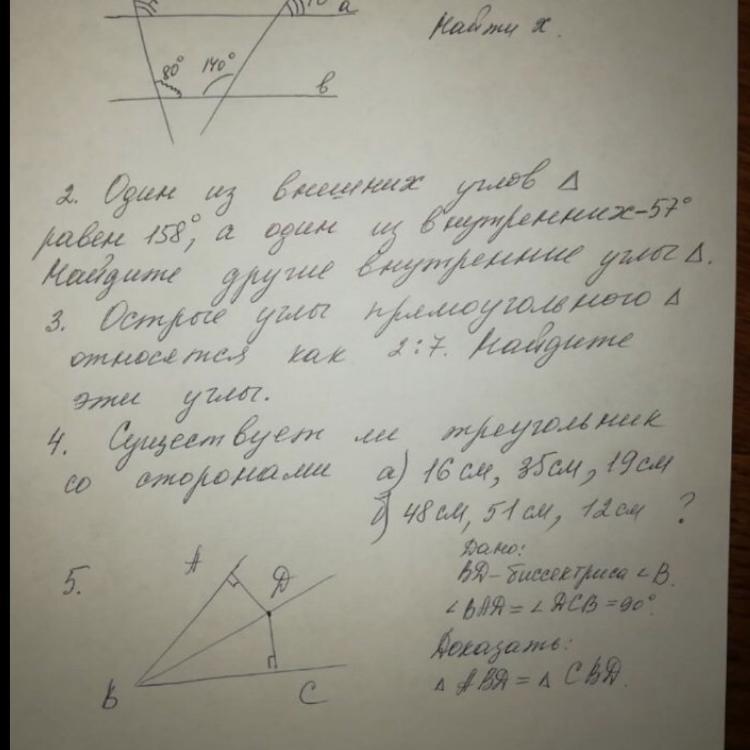 a
Найти x.
80° 140°
в
2. Один из внешних углов Δ
равен 158°, а один из внутренних-57°
Найдите другие внутренние углы Δ.
3. Острые углы прямоугольного Δ
относятся как 2:7. Найдите
эти углы.
4. Существует ли треугольник
со сторонами а) 16 см, 35 см, 19 см
б) 48 см, 51 см, 12 см ?
5.
A
D
B
C
Дано:
BD-биссектриса ∠B.
∠BAD = ∠DCB = 90°.
Доказать:
Δ ABD = Δ CBD.